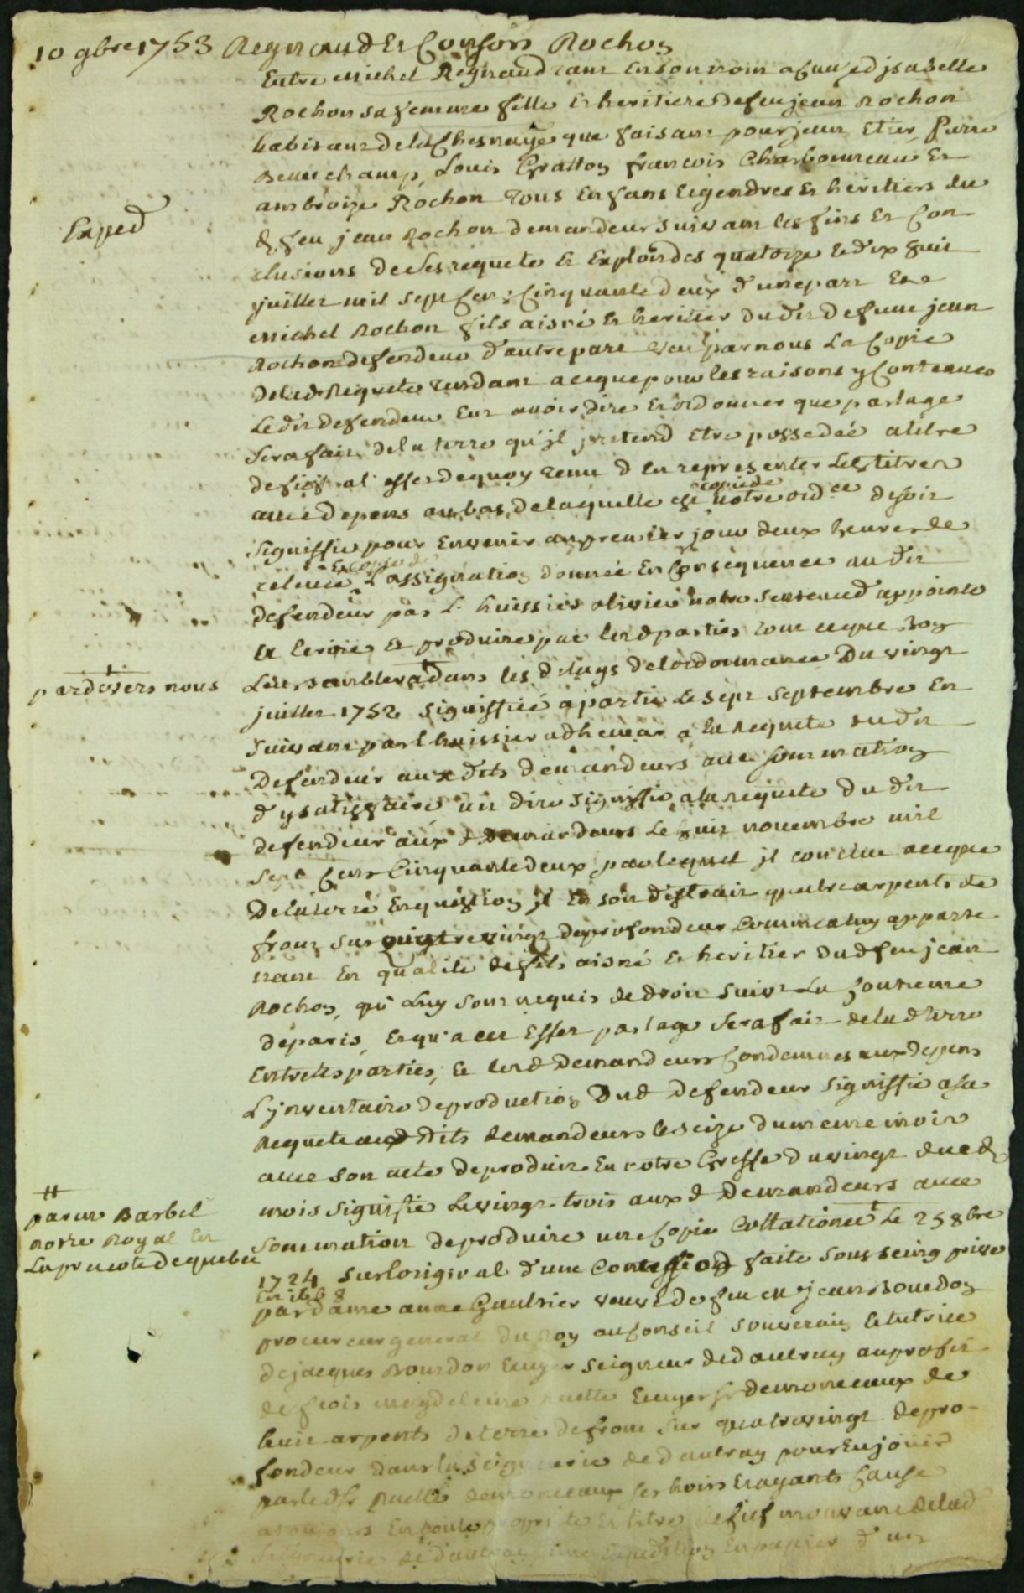 10 9bre 1753 Regnaud Et Consors Rochon
Entre Michel Regnaud tant En son nom a Cause d jsabelle
Rochon sa femme fille Et heritiere de feu jean Rochon
habitant de la Chesnaye que faisant pour jean Etier, Pierre
Beauchamp, Louis Gratton francois Charbonneau Et
ambroise Rochon Tous Enfans Et gendres Et heritiers du
Exped
d feu jean Rochon demandeur suivant les fins Et Con
clusions de Ses requete Et Exploits des quatorze Et dix huit
juillet mil Sept Cent Cinquante deux d'une part Et
Michel Rochon fils aisné Et heritier du dit defunt jean
Rochon defendeur d'autre part Veu par nous La Copie
de lad Requete tendant a ceque pour les raisons y Contenues
Le dit defendeur Eut avoir dire Et ordonner que partage
Sera fait de la terre qu'jl pretend Etre possedée a titre
de fief al effet dequoy tenu d En representer Les titres
avec depens au bas de laquelle Est notre ordce d'Soit
signiffié pour En venir au premier jour deux heures de
relevée L'assignation donnée En Consequence au dit
defendeur par L huissier olivier notre Sentence d appointé
a Ecrire Et produire par lesd parties tout ceque bon
par devers nous
Leur semblera dans les delays de l'ordonnance Du vingt
juillet 1752 signiffiée a partie Le Sept Septembre En
suivant par l huissier adhemar a la Requete du dit
Defendeur aux dits demandeurs avec sommation
d'y satisfaire un dire signiffié a la requete du dit
defendeur aux d Demandeurs Le huit novembre mil
Sept Cent Cinquante deux par lequel jl conclue aceque
De la terre En question jl En soit distrait quatre arpents de
front sur quatrevingt de profondeur Comme a luy apparte
nant En qualité de fils aisné Et heritier dud feu jean
Rochon, qui Luy sont acquis de droit suivt La Coutume
de paris, Et qu'a cet Effet partage Sera fait de la d terre
Entre les parties, Et lesd Demandeurs Condamnés aux depens
L'jnventaire de production Dud Defendeur signiffié a sa
Requete aux dits demandeurs le seize du meme mois
avec son acte de produire En notre Greffe du vingt dud
mois signifié Le vingt trois aux d Demandeurs avec
##
par me Barbel
notre Royal En
La prevoté de quebec
Sommation de produire une Copie Collationée Le 25 8bre
1724 sur l'original d'une Concession faite Sous Seing privé
par dame anne Gaultier veuve de feu jean Bourdon
procureur general du Roy au Conseil Souverain Et tutrice
de jacques Bourdon Ecuyer Seigneur de dautray au profit
de Ruette Ecuyer Sr de monceaux de
huit arpents de terre de front Sur quatrevingt de pro-
fondeur dans la Seigneurie de dautray pour En jouir
par le d Sr Ruette de monceaux ses hoirs Et ayants Cause
a toujours En toute proprieté Et titre de fief mouvant de lad
Seigneurie de dautray une Expedition En papier d'un